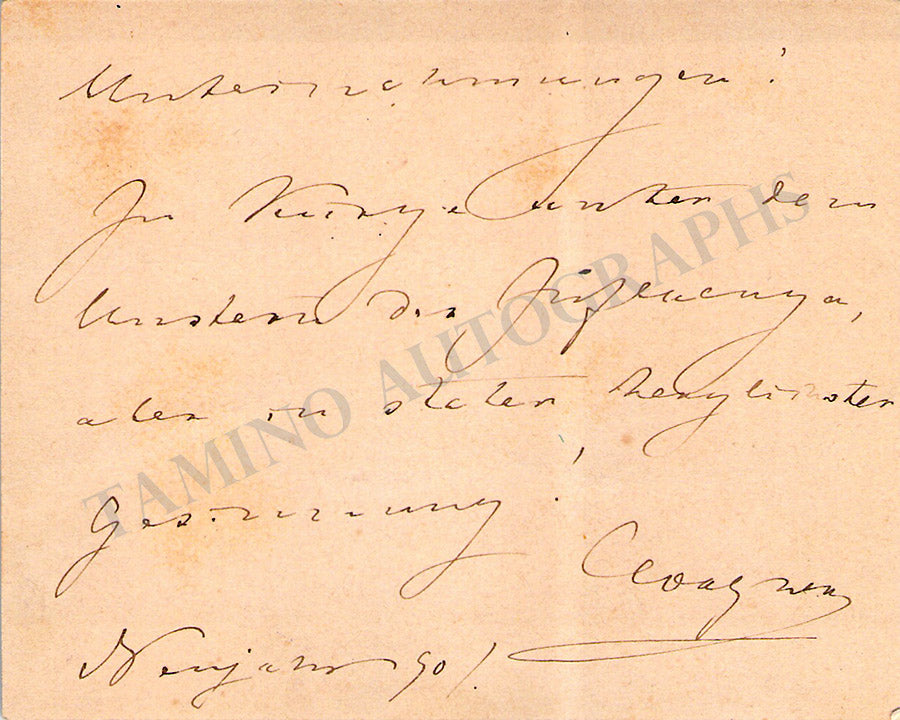 Unternehmungen!
In Kürze unter dem
Unstern der Influenza,
aber in steter herzlichster
Gesinnung!
CWagner
Neujahr 90/.
TAMINO AUTOGRAPHS